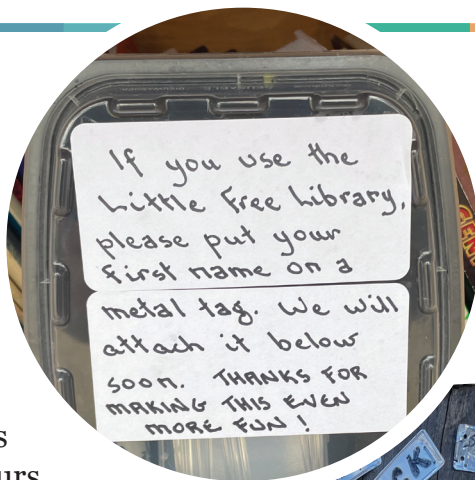 If you use the
Little Free Library,
please put your
first name on a
metal tag. We will
attach it below
soon. THANKS FOR
MAKING THIS EVEN
MORE FUN!
s
urs
CK